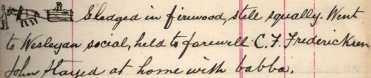 Sledged in firewood, still squally. Went
to Wesleyan social, held to farewell C. F. Fredericksen
John stayed at home with babba.